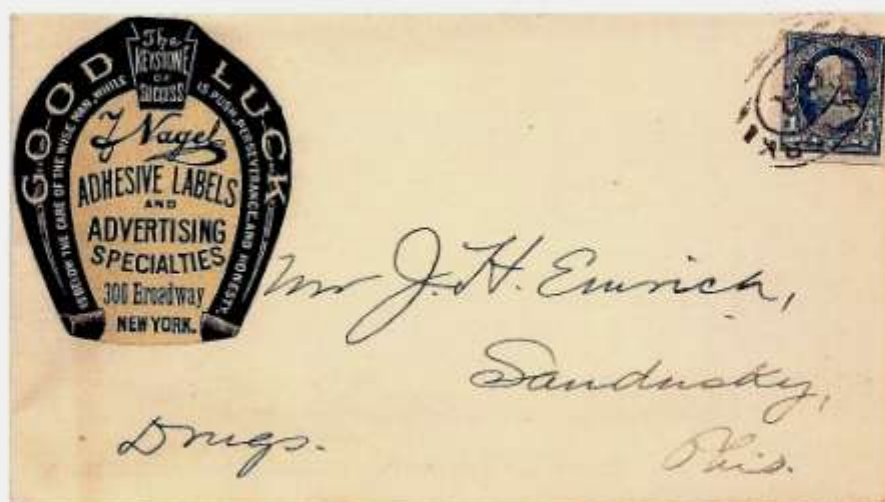 GOOD LUCK
The
KEYSTONE
OF
SUCCESS
IS BELOW THE CARE OF THE WISE MAN, WHILE
IS PUSH, PERSEVERANCE, AND HONESTY.
Nagel
ADHESIVE LABELS
AND
ADVERTISING
SPECIALTIES
300 Broadway
NEW YORK.
Mr J. H. Emrich,
Sandusky,
Drugs.
Wis.